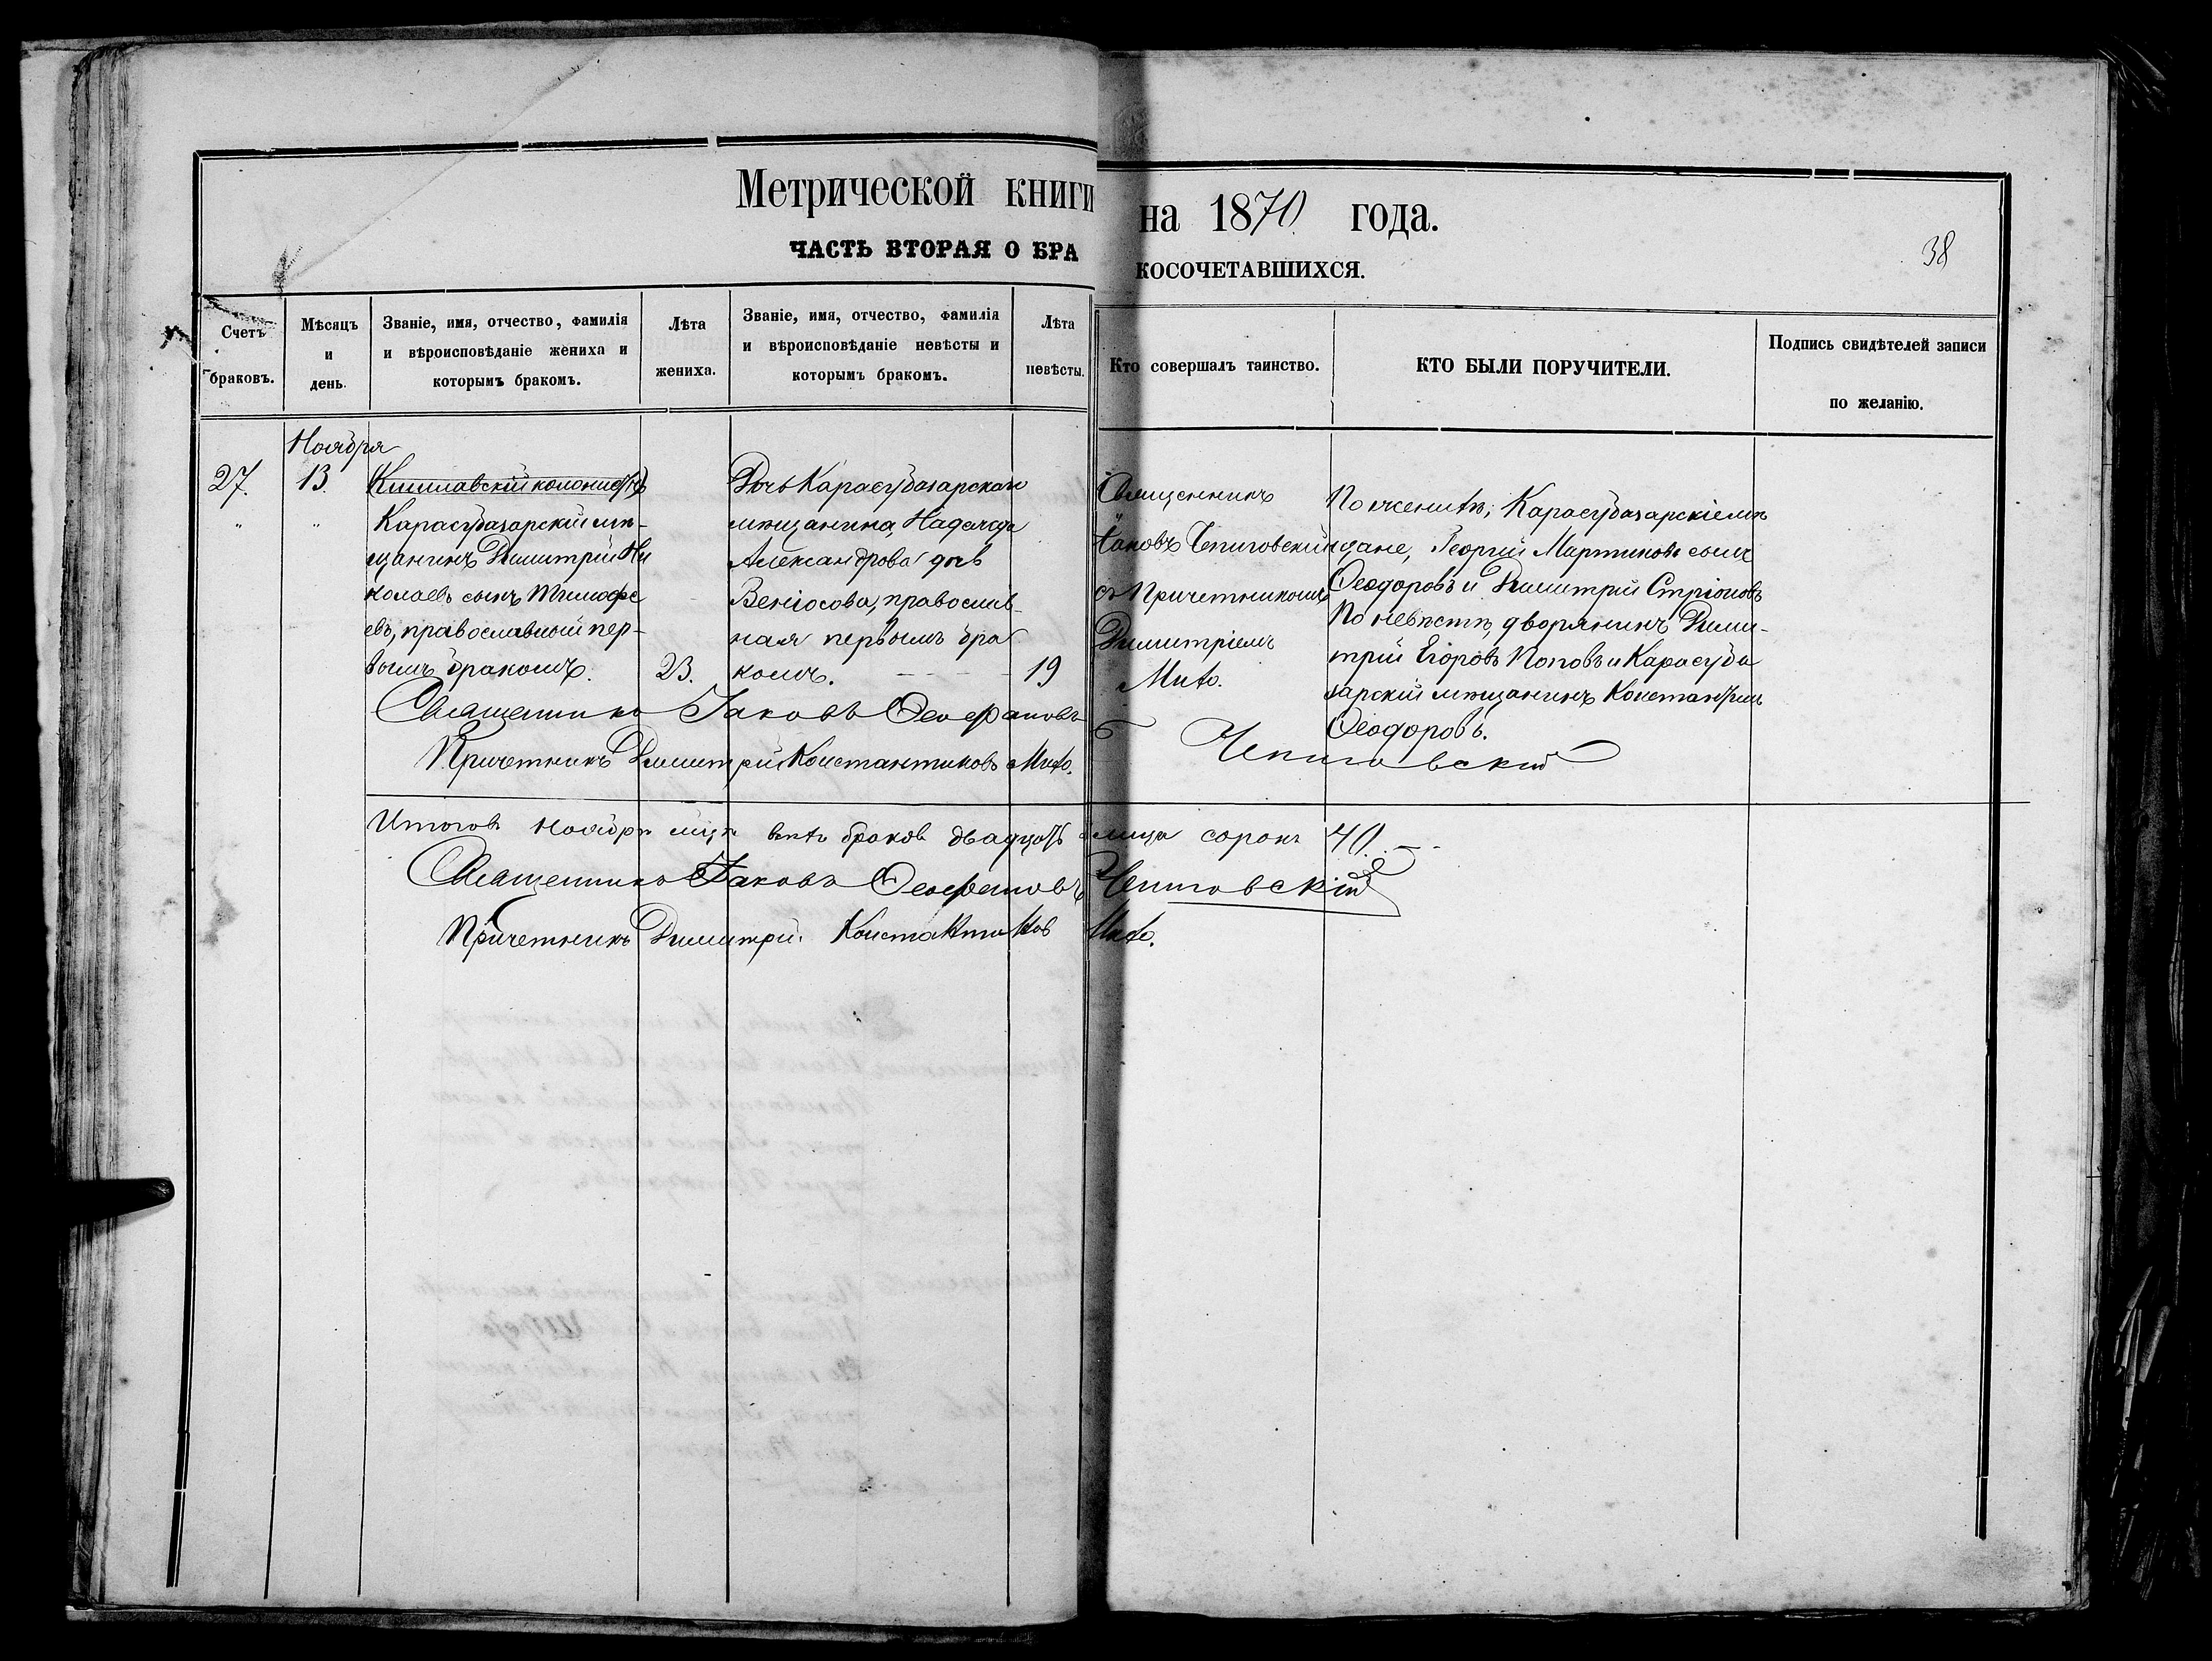 Метрической книги на 1870 года.
38
ЧАСТЬ ВТОРАЯ О БРАКОСОЧЕТАВШИХСЯ.
Счетъ
браковъ.
Мѣсяцъ
и
день.
Званіе, имя, отчество, фамилія
и вѣроисповѣданіе жениха и
которымъ бракомъ.
Лѣта
жениха.
Званіе, имя, отчество, фамилія
и вѣроисповѣданіе невѣсты и
которымъ бракомъ.
Лѣта
невѣсты.
Кто совершалъ таинство.
КТО БЫЛИ ПОРУЧИТЕЛИ.
Подпись свидѣтелей записи
по желанію.
27.
Ноября
13.
Кишлавскій колонистъ
Карасубазарскій мѣ-
щанинъ Димитрій Ни
колаевъ сынъ Тимофе
евъ, православный пер-
вымъ бракомъ.
23.
Дочь Карасубазарскаго
мѣщанина, Надежда
Александрова дочь
православ-
ная первымъ бра
комъ.
19
Священникъ
Іаковъ Чепиговскій
съ Причетникомъ
Димитріемъ
Мито.
По женихѣ, Карасубазарскіе мѣ
щане, Георгій Мартиновъ сынъ
Ѳеодоровъ и Димитрій
По невѣстѣ, дворянинъ Дими-
трій Егоровъ Поповъ и Карасуба
зарскій мѣщанинъ Константинъ
Ѳеодоровъ.
Священникъ Іаковъ Ѳеофановъ Чепиговскій
Причетникъ Димитрій Константиновъ Мито.
Итого въ Ноябрѣ мцѣ браковъ двадцать лица сорокъ 40.
Священникъ Іаковъ Ѳеофановъ Чепиговскій
Причетникъ Димитрій Константиновъ Мито.